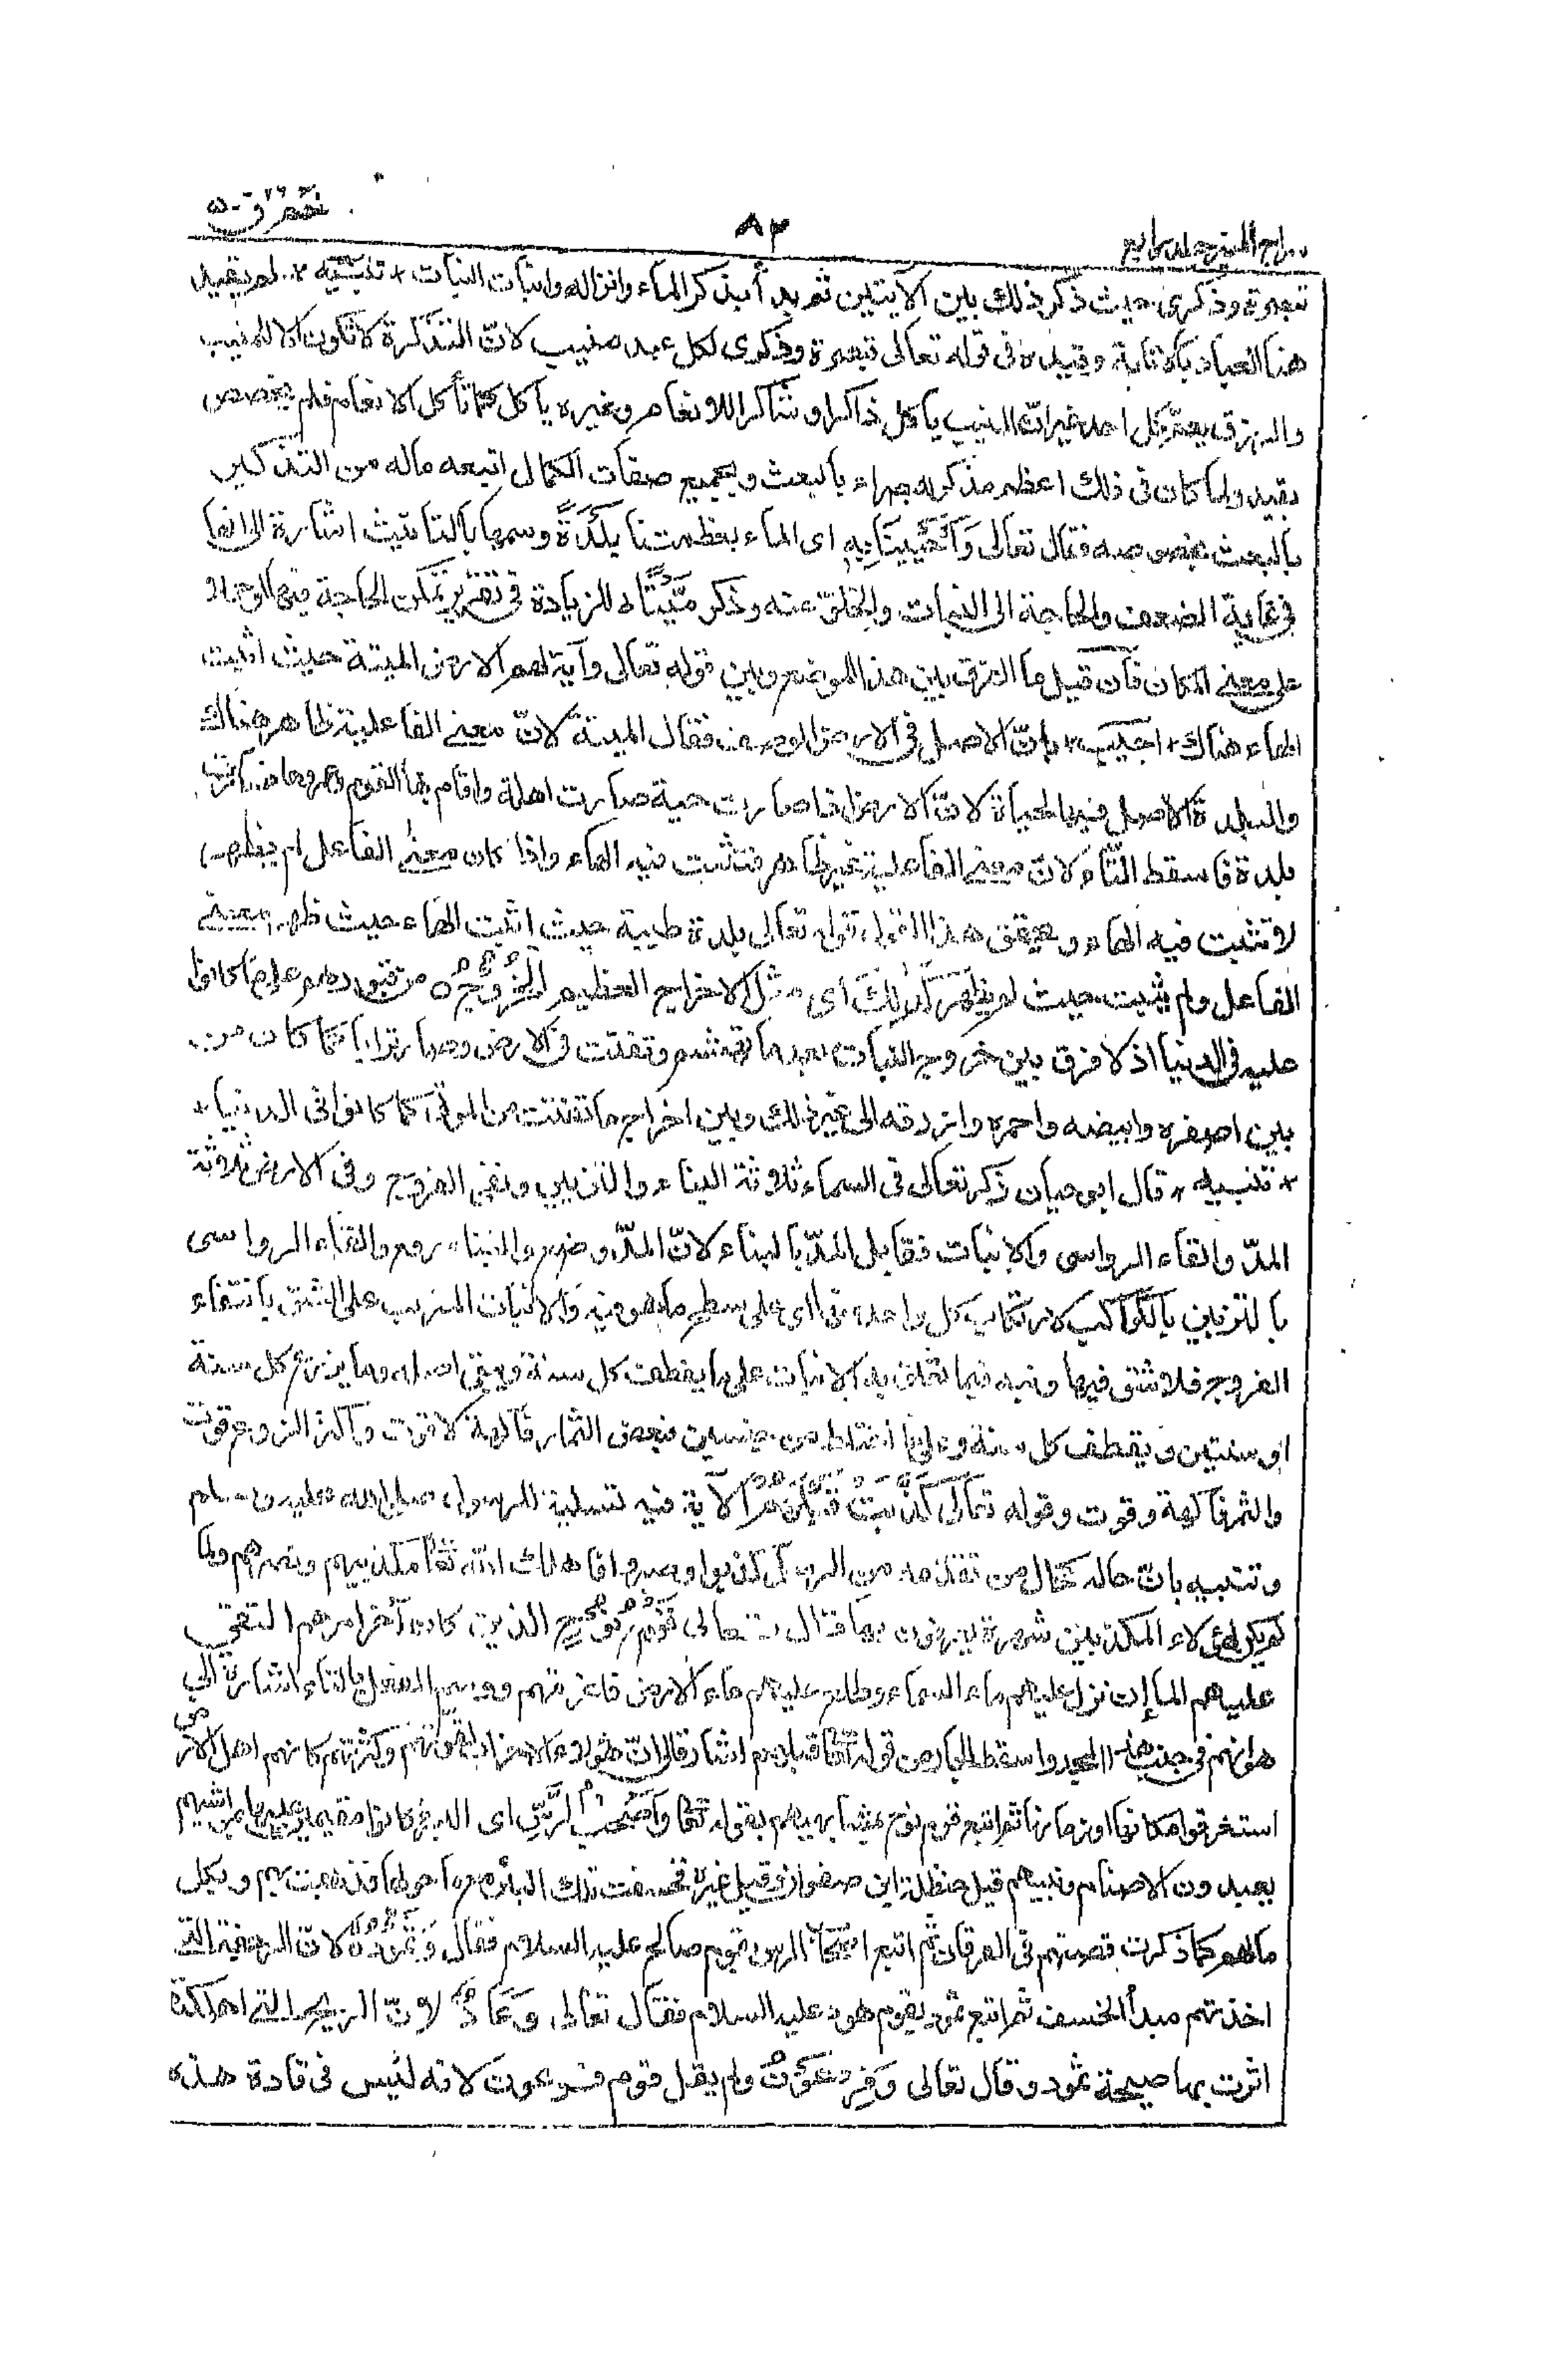 سراج المنير جلد رابع ٨٣ حم ٢٦ ق ٥٠
تبصرة وذكرى حيث ذكر ذلك بين الآيتين ثم بدأ بذكر الماء وانزاله وانبات النبات * تنبيه * لم يقيد
هنا العباد بالانابة وقيده فى قوله تعالى تبصرة وذكرى لكل عبد منيب لانّ التذكرة لا تكون الا لمنيب
والرزق يعمّ كل احد غير انّ المنيب يأكل ذاكرا وشاكرا للانعام وغيره يأكل كما تأكل الانعام فلم يخصص
بقيد ولما كان فى ذلك اعظم مذكر له جهراء بالبعث وبجميع صفات الكمال اتبعه ماله من التذكير
بالبعث بخصوصه فقال تعالى وَاَحْيَيْنَا بِهٖ اى الماء بعظمتنا بَلْدَةً وسمها بالتأنيث اشارة الى انها
فى غاية الضعف والحاجة الى النبات والخلق عنه وذكر مَّيْتًا للزيادة فى تقرير تمكن الحاجة فيها او حملا
على معنى المكان فان قيل ما الفرق بين هذا الموضع وبين قوله تعالى وآية لهم الارض الميتة حيث اثبت
الهاء هناك * اجيب * بانّ الاصل فى الارض الوصف فقال الميتة لانّ معنى الفاعلية ظاهر هناك
والبلدة الاصل فيها الحياة لانّ الارض اذا صارت حية صارت اهلة واقام بها القوم وعمروها فصارت
بلدة فاسقط التاء لانّ معنى الفاعلية غير ظاهر فتثبت فيه الهاء واذا كان معنى الفاعل لم يظهر
لا تثبت فيه الهاء ويحقق هذا القول قوله تعالى بلدة طيبة حيث اثبت الهاء حيث ظهر بمعنى
الفاعل ولم يثبت حيث لم يظهر كَذٰلِكَ اى مثل الاخراج العظيم الْخُرُوْجُ من قبورهم على ما كانوا
عليه فى الدنيا اذ لا فرق بين خروج النبات بعد ما تهشم وتفتت فى الارض وصار ترابا كما كان من
بين اصفره وابيضه واحمره وازرقه الى غير ذلك وبين اخراج ما تفتت من الموتى كما كانوا فى الدنيا *
* تنبيه * قال ابو حيان ذكر تعالى فى السماء ثلاثة البناء والتزيين ونفى الفروج وفى الارض ثلاثة
المدّ والقاء الرواسى والانبات فقابل المدّ بالبناء لانّ المدّ وضع والبناء رفع والقاء الرواسى
بالتزيين بالكواكب لارتكاب كل واحد منها اى على سطح ما هو فيه والانبات المترتب على الشق بانتفاء
الفروج فلا شق فيها ونبه فيما تعلق به الانبات على ما يقطف كل سنة ويبقى اصله وما يزرع كل سنة
او سنتين ويقطف كل سنة وعلى ما اختلط من جنسين فبعض الثمار فاكهة لا قوت واكثر الزروع قوت
والثمر فاكهة وقوت وقوله تعالى كَذَّبَتْ قَبْلَهُمْ الآية فيه تسلية للرسول صلى الله عليه وسلم
وتنبيه بان حاله كحال من تقدمه من الرسل كذبوا وصبروا فاهلك الله تعالى مكذبيهم ونصرهم ولما
لم يكن لهؤلاء المكذبين شهرة يعرفون بها قال تعالى قَوْمُ نُوْحٍ الذين كان آخر امرهم التقى
عليهم الماآن نزل عليهم ماء السماء وطلع عليهم ماء الارض فاغرقهم ووسم الفعل بالتاء اشارة الى
هوانهم فى جنب هذا المجد واسقط الجار من قوله تعالى قبلهم اشارة الى ان هؤلاء الاحزاب لقوتهم وكثرتهم كانهم اهل الارض
استغرقوا مكانها وزمانها ثم اتبع قوم نوح بمشابههم بقوله تعالى وَاَصْحٰبُ الرَّسِّ اى البئر كانوا مقيمين عليها بمواشيهم
يعبدون الاصنام ونبيهم قيل حنظلة بن صفوان وقيل غيره فخسفت تلك البئر مع ما حولها فذهبت بهم وبكل
مالهم كما ذكرت قصتهم فى الفرقان ثم اتبع اصحاب الرس بقوم صالح عليه السلام فقال وَثَمُوْدُ لانّ الرجفة التى
اخذتهم مبدأ الخسف ثم اتبع ثمود بقوم هود عليه السلام فقال تعالى وَعَادٌ لانّ الريح التى اهلكتهم
اثرت بها صيحة ثمود وقال تعالى وَفِرْعَوْنُ ولم يقل قوم فرعون لانه ليس فى قادة هذه